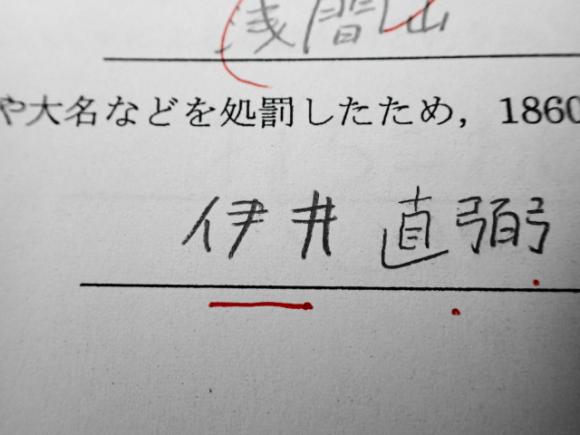 浅間山
や大名などを処罰したため，1860
伊井 直弼